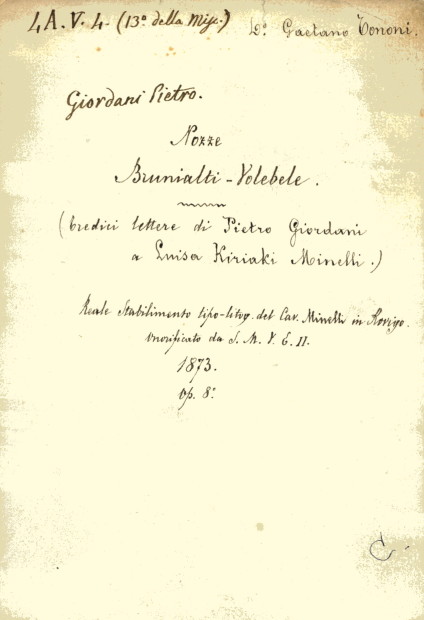 4A. V. 4. (13º della Misc.)
Dº. Gaetano Tononi.
Giordani Pietro.
Nozze
Brunialti - Volebele.
(Tredici lettere di Pietro Giordani
a Luisa Kiriaki Minelli.)
Reale Stabilimento tipo-litog. del Cav. Minelli in Rovigo.
Onorificato da S. M. V. E. II.
1873.
Op. 8º
C.